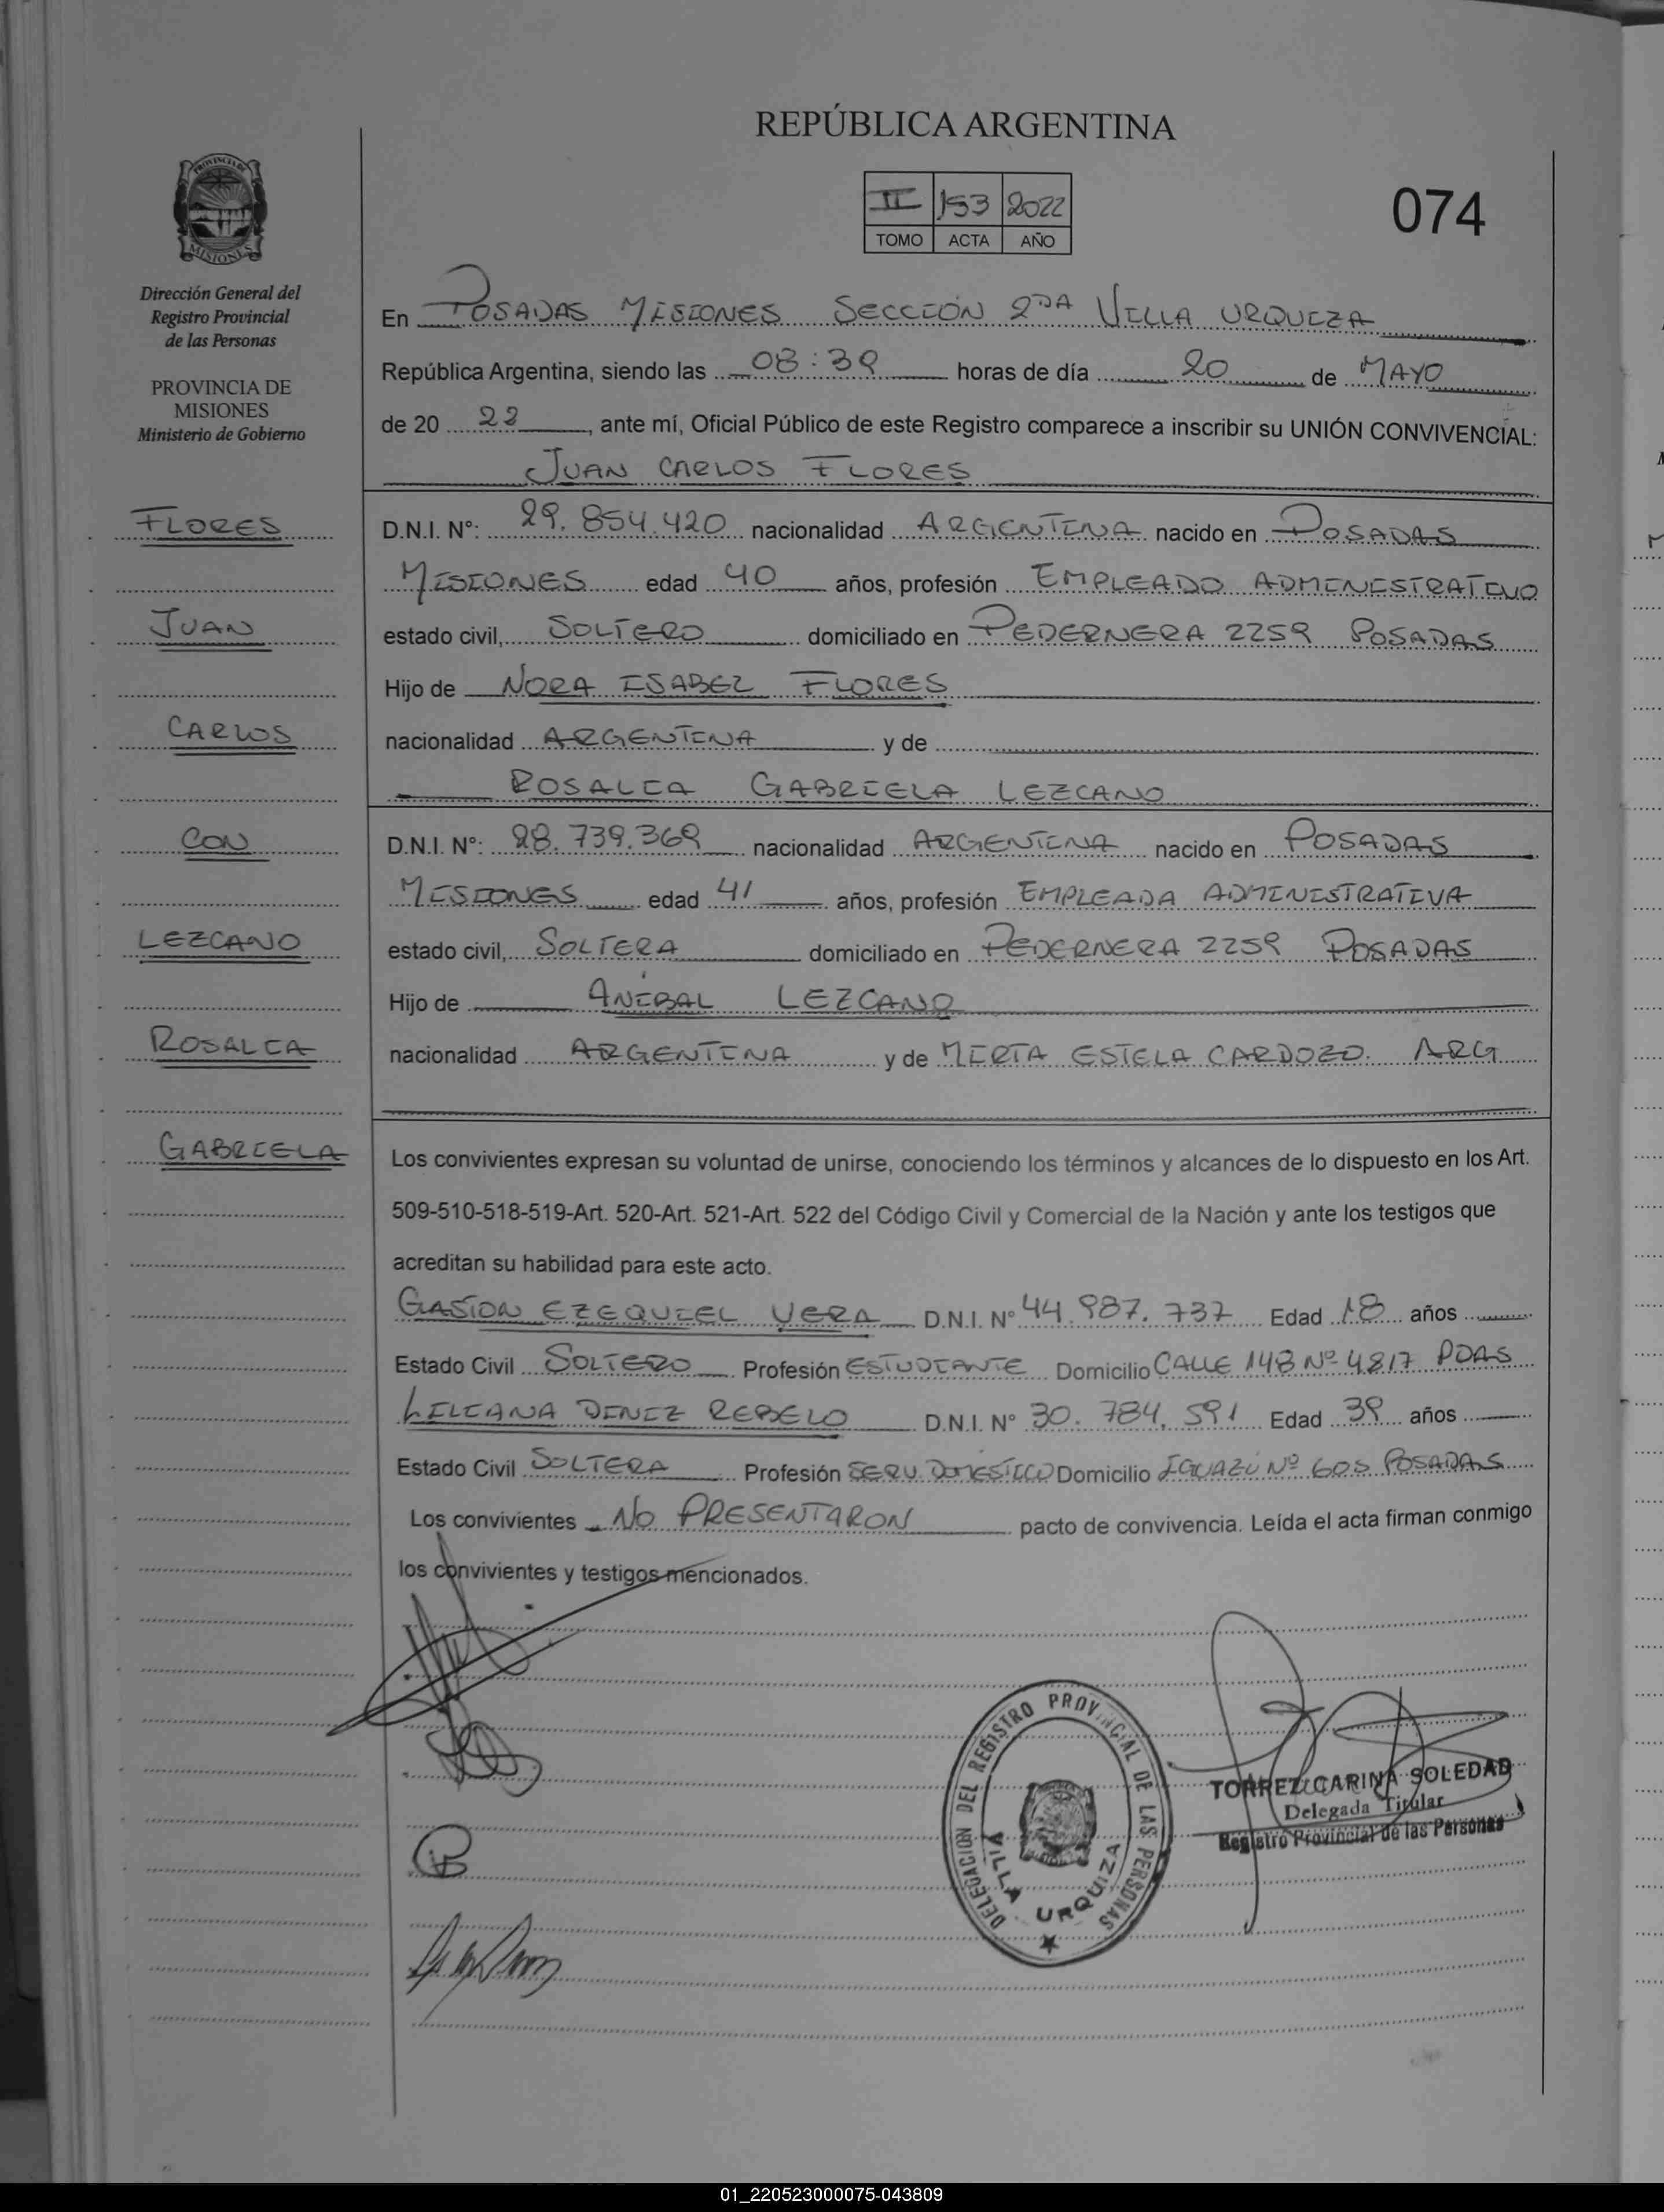 REPÚBLICA ARGENTINA
II 153 2022
TOMO ACTA AÑO
074
PROVINCIA DE
MISIONES
Dirección General del
Registro Provincial
de las Personas
PROVINCIA DE
MISIONES
Ministerio de Gobierno
FLORES
JUAN
CARLOS
CON
LEZCANO
ROSALIA
GABRIELA
En POSADAS MISIONES SECCIÓN 2DA VILLA URQUIZA
República Argentina, siendo las 08:39 horas de día 20 de MAYO
de 20 22, ante mí, Oficial Público de este Registro comparece a inscribir su UNIÓN CONVIVENCIAL:
JUAN CARLOS FLORES
D.N.I. N°: 29.854.420 nacionalidad ARGENTINA nacido en POSADAS
MISIONES edad 40 años, profesión EMPLEADO ADMINISTRATIVO
estado civil, SOLTERO domiciliado en PEDERNERA 2259 POSADAS
Hijo de NORA ISABEL FLORES
nacionalidad ARGENTINA y de
ROSALIA GABRIELA LEZCANO
D.N.I. N°: 28.739.369 nacionalidad ARGENTINA nacido en POSADAS
MISIONES edad 41 años, profesión EMPLEADA ADMINISTRATIVA
estado civil, SOLTERA domiciliado en PEDERNERA 2259 POSADAS
Hijo de ANIBAL LEZCANO
nacionalidad ARGENTINA y de MIRTA ESTELA CARDOZO. ARG
Los convivientes expresan su voluntad de unirse, conociendo los términos y alcances de lo dispuesto en los Art.
509-510-518-519-Art. 520-Art. 521-Art. 522 del Código Civil y Comercial de la Nación y ante los testigos que
acreditan su habilidad para este acto.
GASTON EZEQUIEL VERA D.N.I. N° 44.987.737 Edad 18 años
Estado Civil SOLTERO Profesión ESTUDIANTE Domicilio CALLE 148 Nº 4817 PDAS
LILIANA DINIZ REBELO D.N.I. N° 30.784.591 Edad 39 años
Estado Civil SOLTERA Profesión SERV. DOMESTICO Domicilio IGUAZÚ Nº 605 POSADAS
Los convivientes NO PRESENTARON pacto de convivencia. Leída el acta firman conmigo
los convivientes y testigos mencionados.
DELEGACION DEL REGISTRO PROVINCIAL DE LAS PERSONAS
VILLA URQUIZA
TORREZ CARINA SOLEDAD
Delegada Titular
Registro Provincial de las Personas
01_220523000075-043809